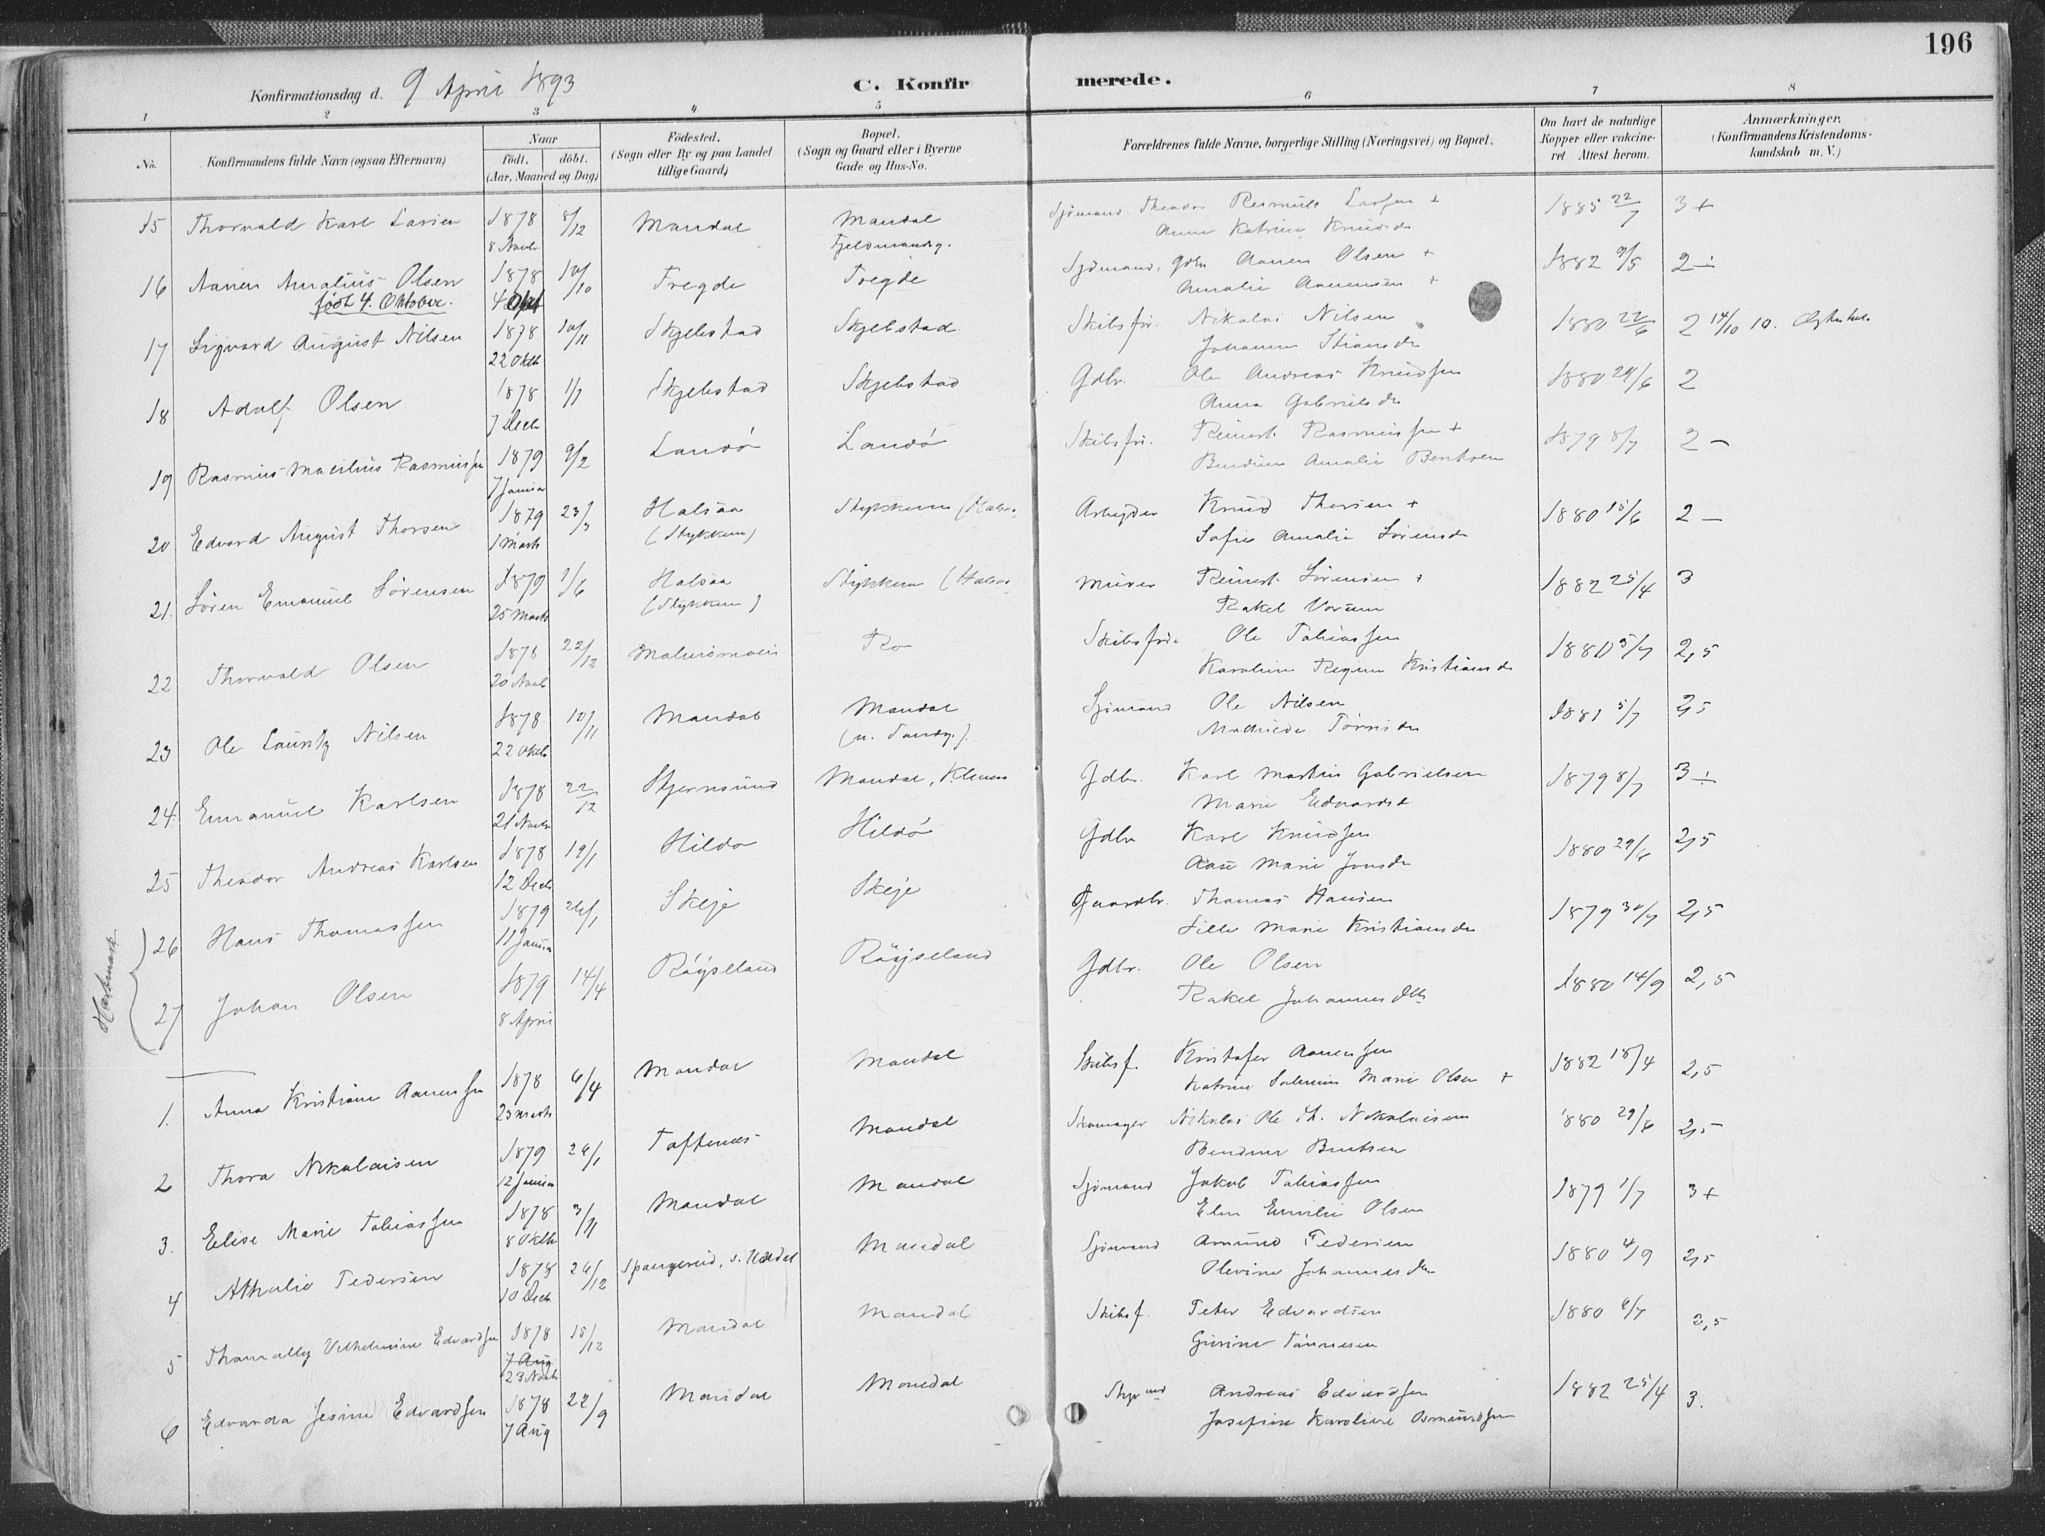 196
Konfirmationsdag d. 9 April 1893
C. Konfirmerede.
1 2 3 4 5 6 7 8
No.
Konfirmandens fulde Navn (ogsaa Efternavn)
Naar
födt. döbt.
(Aar, Maaned og Dag)
Födested.
(Sogn eller By og paa Landet
tillige Gaard)
Bopæl.
(Sogn og Gaard eller i Byerne
Gade og Hus-No.
Forældrenes fulde Navne, borgerlige Stilling (Næringsvei) og Bopæl.
Om havt de naturlige
Kopper eller vakcine-
ret Attest herom.
Anmærkninger.
(Konfirmandens Kristendoms-
kundskab m. V.)
15 Thorvald Karl Larsen 1878 8/12 Mandal Mandal Sjömand Theodor Rasmus Larsen + 1885 22/7 3+
8 Novb Anna Katrine Knudsd
16 Aanen Amalius Olsen 1878 10/10 Tregde Tregde Sjömand, Gdbr Aanen Olsen + 1882 9/5 2÷
født 4. Oktober. 4 Okt Amalie Aanensen +
17 Sigvard August Nilsen 1878 10/11 Skjebstad Skjebstad Skibsför. Nikolai Nilsen 1880 22/6 2 14/10 10.
22 Oktb Johanne Stiansd
18 Adolf Olsen 1878 1/1 Skjebstad Skjebstad Gdbr. Ole Andreas Knudsen 1880 24/6 2
7 Decb Anna Gabrielsd
19 Rasmus Macilius Rasmussen 1879 9/2 Landö Landö Skibsför. Reinert Rasmussen + 1879 8/7 2 -
7 Januar Bendine Amalie Bentsen
20 Edvard August Thorsen 1879 23/3 Halsaa Stykkem (Halsa. Arbeyder Knud Thorsen + 1880 15/6 2 -
1 Marts (Stykkem) Sofie Amalie Sörensd
21. Sören Emanuel Sörensen 1879 1/6 Halsaa Stykkem (Halsaa Murer Reinert Sörensen + 1882 25/4 3
25 Marts (Stykkem) Rakel
22 Thorvald Olsen 1878 22/12 Malmö Ro Skibsför. Ole Tobiassen 1881 5/7 2,5
20 Novb Karoline Regine Kristiansd
23 Ole Lauritz Nilsen 1878 10/11 Mandal Mandal Sjömand Ole Nilsen 1881 5/7 2,5
22 Oktb Mathilde Tönnesd
24. Emanuel Karlsen 1878 22/12 Stjernsund Mandal, Kleven Gdbr. Karl Martin Gabrielsen 1879 8/7 3÷
21 Novb Marie Edvardsd
25 Theodor Andreas Karlsen 1878 19/1 Hildo Hildö Gdbr Karl Knudsen 1880 29/6 2,5
12 Decb Aase Marie Jonsd
26 Hans Thomassen 1879 26/1 Skeje Skeje Gaardbr. Thomas Hansen 1879 30/7 2,5
11 Januar Sille Marie Kristiansd
Hartmark
27 Johan Olsen 1879 14/4 Röyseland Röyseland Gdbr. Ole Olsen 1880 14/9 2,5
8 April Rakel Johannesdtr
1. Anna Kristiane Aanensen 1878 6/4 Mandal Mandal Skibsf. Kristofer Aanensen 1882 18/4 2,5
23 Marts Katrine Marie Olsen +
2 Thora Nikolaisen 1879 26/1 Toftenes Mandal Skomager Nikolai Ole Th. Nikolaisen 1880 29/6 2,5
12 Januar Bendine Bentsen
3. Elise Marie Tobiassen 1878 3/11 Mandal Mandal Sjömand Jakob Tobiassen 1879 1/7 3+
8 Oktb Elen Emilie Olsen
4 Athalie Pedersen 1878 26/12 Spangereid, s. Undal Mandal Sjömand Amund Pedersen 1880 4/9 2,5
10 Decb Olevine Johannesdtr
5 Thomally Vilhelmine Edvardsen 1878 15/12 Mandal Mandal Skibsf. Peter Edvardsen 1880 6/7 2,5
7 Aug Gurine Tönnesen
23 Novb
6 Edvarda Jesine Edvardsen 1878 22/9 Mandal Mandal Styrmd Andreas Edvardsen 1882 25/4 3.
7 Aug Josefine Karoline Osmundsen